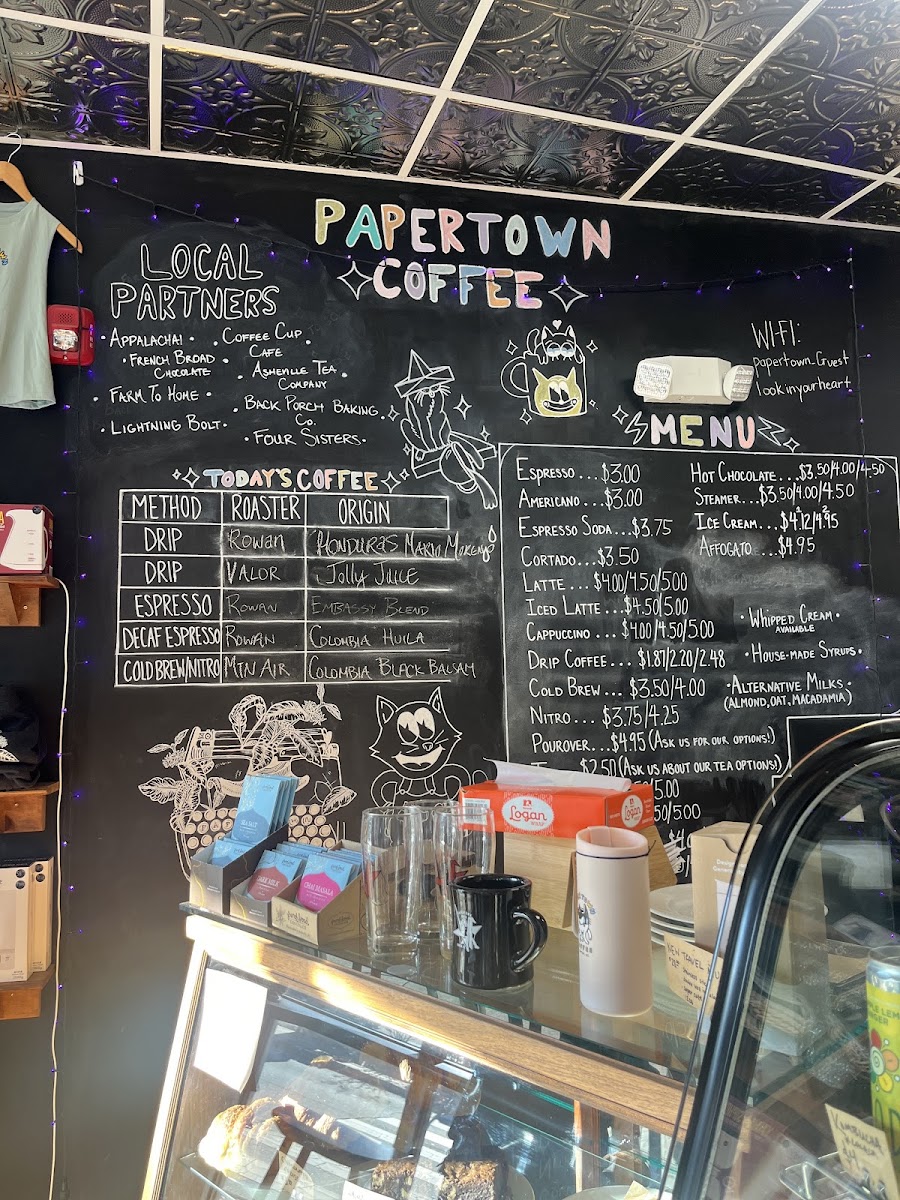 PAPERTOWN
COFFEE
LOCAL
PARTNERS
• APPALACHAI •
• FRENCH BROAD
CHOCOLATE
• FARM TO HOME •
• LIGHTNING BOLT •
• COFFEE CUP •
CAFE
• ASHEVILLE TEA •
COMPANY
• BACK PORCH BAKING
CO. •
• FOUR SISTERS •
WI-FI:
Papertown_Guest
lookinyourheart
TODAY'S COFFEE
METHOD ROASTER ORIGIN
DRIP Rowan HONDURAS MARIO MORENO
DRIP VALOR Jolly Juice
ESPRESSO ROWAN EMBASSY BLEND
DECAF ESPRESSO ROWAN COLOMBIA HUILA
COLD BREW/NITRO MTN AIR COLOMBIA BLACK BALSAM
MENU
ESPRESSO...$3.00
AMERICANO...$3.00
ESPRESSO SODA...$3.75
CORTADO...$3.50
LATTE...$4.00/4.50/5.00
ICED LATTE...$4.50/5.00
CAPPUCCINO...$4.00/4.50/5.00
DRIP COFFEE...$1.87/2.20/2.48
COLD BREW...$3.50/4.00
NITRO...$3.75/4.25
POUROVER...$4.95 (ASK US FOR OUR OPTIONS!)
$2.50 (ASK US ABOUT OUR TEA OPTIONS!)
5.00
50/5.00
HOT CHOCOLATE...$3.50/4.00/4.50
STEAMER...$3.50/4.00/4.50
ICE CREAM...$4.12/4.95
AFFOGATO...$4.95
• WHIPPED CREAM •
AVAILABLE
• HOUSE-MADE SYRUPS •
• ALTERNATIVE MILKS •
(ALMOND, OAT, MACADAMIA)
Logan
SEA SALT
DARK MILK
CHAI MASALA
NEW TRAVEL